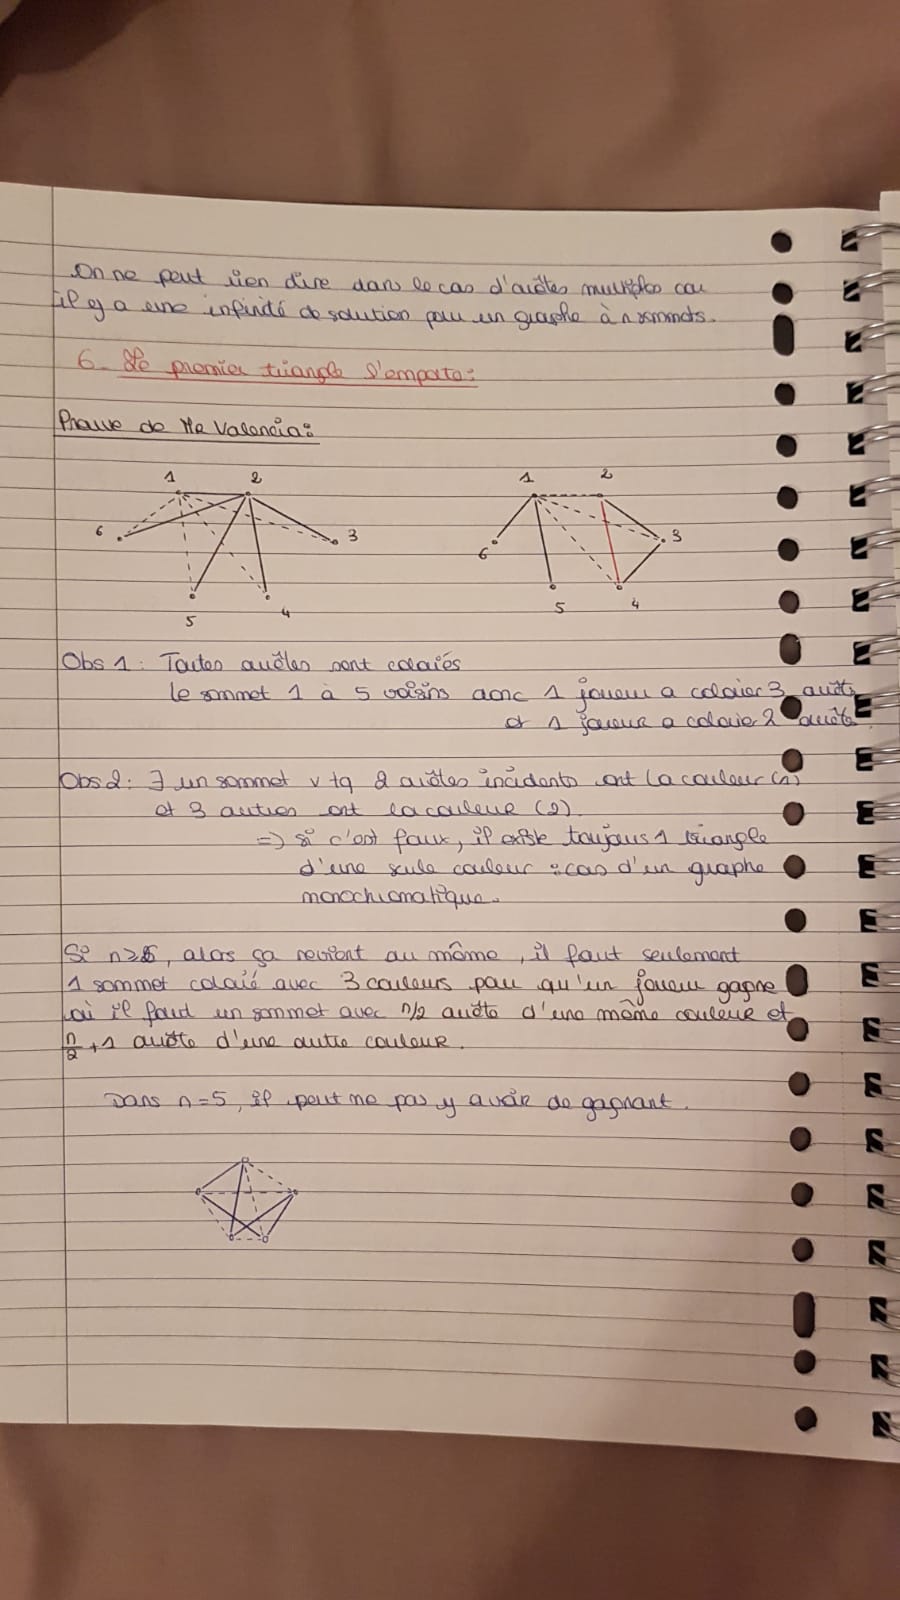 On ne peut rien dire dans le cas d'arêtes multiples car
il y a une infinité de solution pour un graphe à n sommets.
6- Le premier triangle l'emporte:
Preuve de Mr Valencia:
1 2 1 2
6 3 6 3
5 4 5 4
Obs 1: Toutes arêtes sont colorés
le sommet 1 à 5 voisins donc 1 joueur a colorier 3 arêt
et 1 joueur a colorier 2 arêt
Obs 2: ∃ un sommet v tq 2 arêtes incidents ont la couleur (1)
et 3 autres ont la couleur (2).
=) si c'est faux, il existe toujours 1 triangle
d'une seule couleur : cas d'un graphe
monochromatique.
Si n≥6, alors ça revient au même, il faut seulement
1 sommet colorié avec 3 couleurs pour qu'un joueur gagne
où il faut un sommet avec n/2 arête d'une même couleur et
n/2 +1 arête d'une autre couleur.
Dans n=5, il peut ne pas y avoir de gagnant.